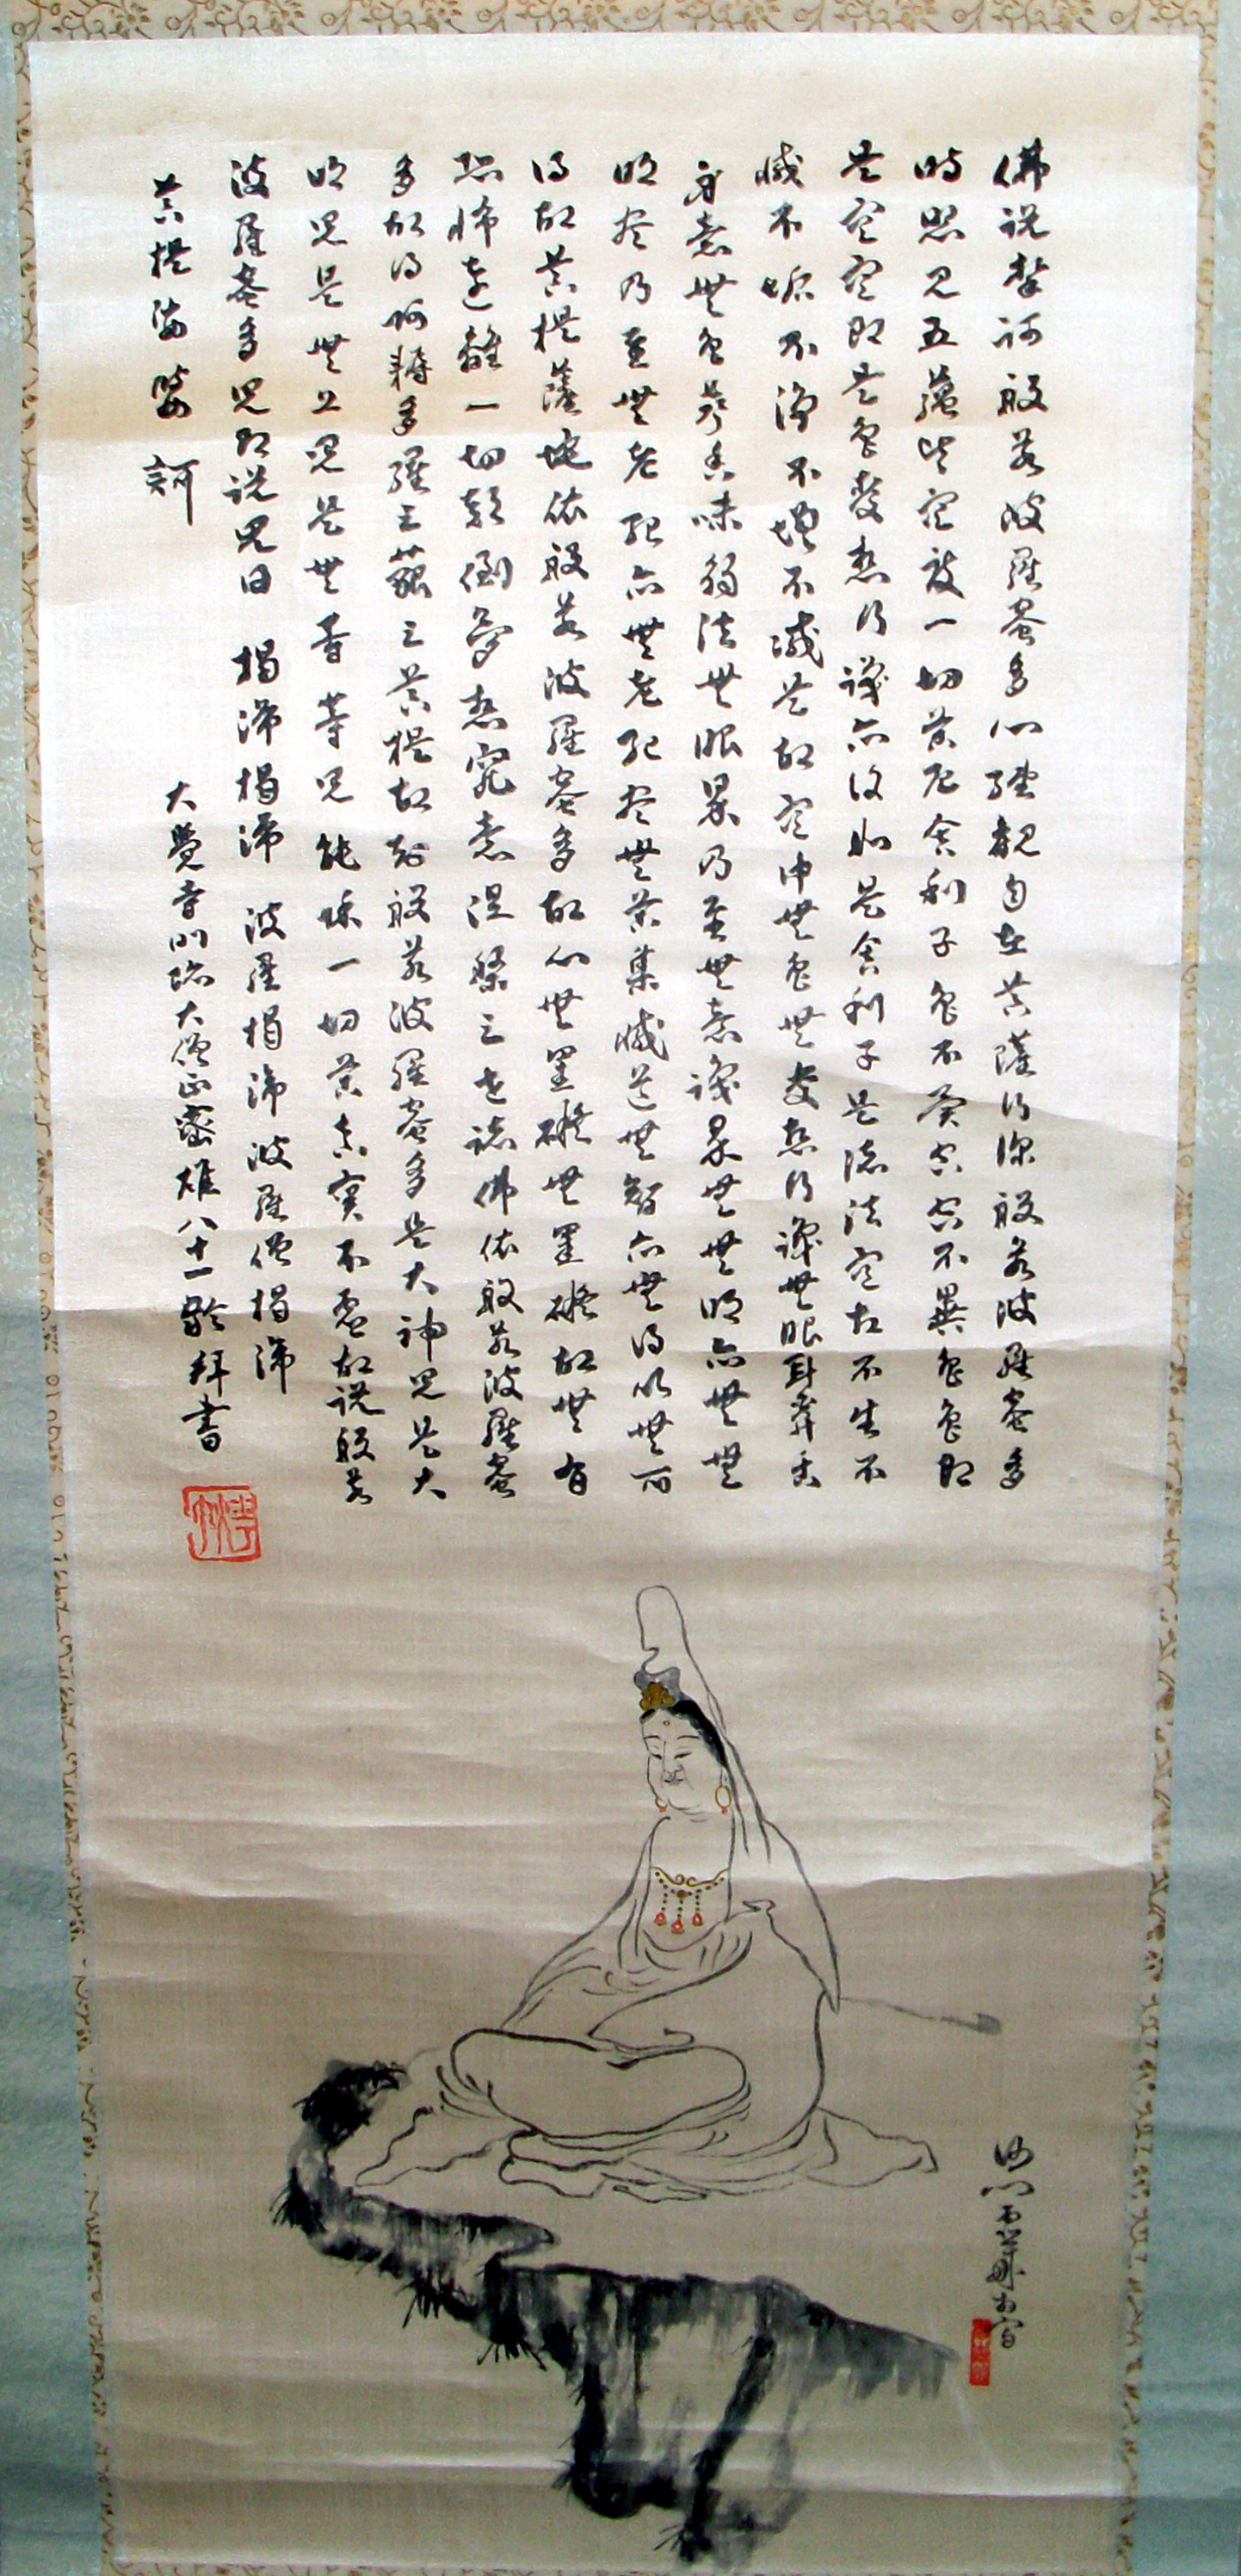 佛説摩訶般若波羅蜜多心経観自在菩薩行深般若波羅蜜多
時照見五蘊皆空度一切苦厄舎利子色不異空空不異色色即
是空空即是色受想行識亦復如是舎利子是諸法空相不生不
滅不垢不浄不増不減是故空中無色無受想行識無眼耳鼻舌
身意無色聲香味觸法無眼界乃至無意識界無無明亦無無
明尽乃至無老死亦無老死尽無苦集滅道無智亦無得以無所
得故菩提薩埵依般若波羅蜜多故心無罣礙無罣礙故無有
恐怖遠離一切顛倒夢想究竟涅槃三世諸佛依般若波羅蜜
多故得阿耨多羅三藐三菩提故知般若波羅蜜多是大神呪是大
明呪是無上呪是無等等呪能除一切苦真実不虚故説般若
波羅蜜多呪即説呪曰 揭諦揭諦 波羅揭諦 波羅僧揭諦
菩提娑婆訶
大覺寺門跡大僧正密雄八十一齡拜書
沙門